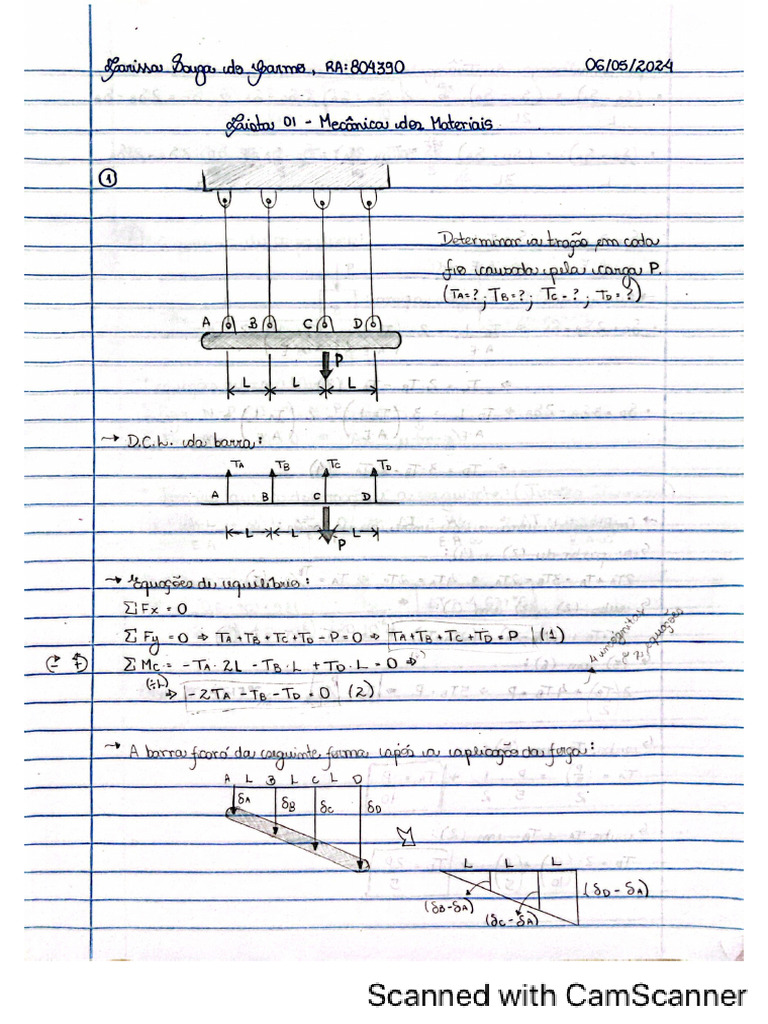 Larissa Souza do Carmo, RA: 804390 06/05/2024
Lista 01 - Mecânica dos Materiais.
1
Determinar a tração em cada
fio causada pela carga P.
(TA=?; TB=?; TC=?; TD=?)
A B C D
P
L L L
→ D.C.L. da barra:
TA TB TC TD
A B C D
L L L
P
→ Equações de equilíbrio:
ΣFx = 0
ΣFy = 0 ⇒ TA+TB+TC+TD-P=0 ⇒ TA+TB+TC+TD=P (1)
ΣMC = -TA.2L - TB.L + TD.L = 0 ⇒
(÷L) ⇒ -2TA - TB - TD = 0 (2)
4 incógnitas
e 2 equações
→ A barra ficará da seguinte forma após a aplicação da força:
A L B L C L D
δA δB δC δD
L L L
(δB-δA) (δC-δA) (δD-δA)
Scanned with CamScanner